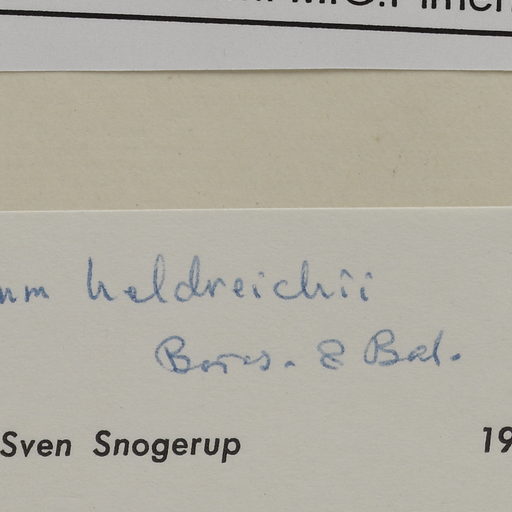 heldreichii
Boiss. & Bal.
Sven Snogerup 19